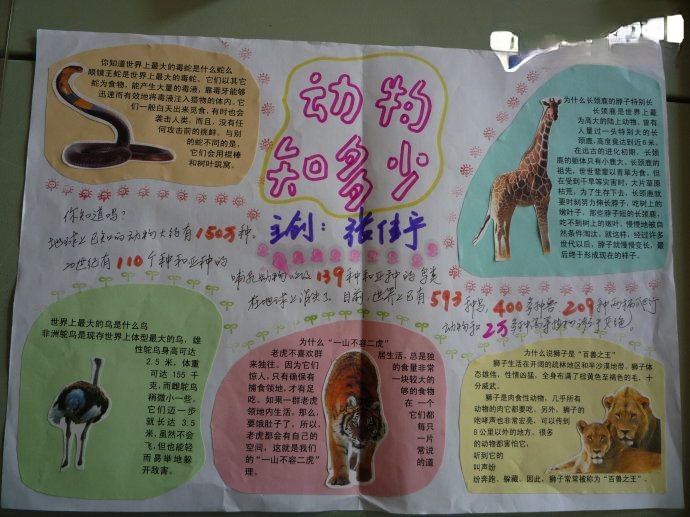 你知道世界上最大的毒蛇是什么蛇么
眼镜王蛇是世界上最大的毒蛇。它们以其它
蛇为食物。能产生大量的毒液，靠毒牙能够
迅速而有效地将毒液注入猎物的体内。它
们一般白天出来觅食，有时也会
袭击人类，而且，没有任
何攻击前的挑衅。与别
的蛇不同的是，
它们会用棍棒
和树叶筑窝。
动物
知多少
主创：张佳宇
为什么长颈鹿的脖子特别长
长颈鹿是世界上最
为高大的陆上动物，曾有
人量过一头特别大的长
颈鹿，高度竟达到近6米。
在远古的进化初期，长颈
鹿的躯体只有小鹿大，长颈鹿的
祖先，世世辈辈以青草为食，但
在受到干旱等灾害时，大片草原
枯荒，为了生存下去，长颈鹿就
要时刻努力伸长脖子，吃树上的
嫩叶子，那些脖子短的长颈鹿，
吃不到树上的嫩叶，慢慢地被自
然条件淘汰，就这样，经过许多
世代以后，脖子就慢慢变长，最
后终于形成现在的样子。
你知道吗？
地球上已知的动物大约有150万种。
20世纪有110个种和亚种的
哺乳动物以及139种和亚种的鸟类
在地球上消失了。目前，世界上已有593种鸟，400多种兽，209种两栖爬行
动物和2万多种高等植物濒于灭绝。
世界上最大的鸟是什么鸟
非洲鸵鸟是现存世界上体型最大的鸟，雄
性鸵鸟身高可达
2.5 米，体重
可达 155 千
克，而雌鸵鸟
稍微小一些。
它们迈一步
就长达 3.5
米，虽然不会
飞，但也能轻
而易举地躲
开敌害。
为什么“一山不容二虎”
老虎不喜欢群居生活，总是独
来独往。因为它们的食量非常
惊人，只有确保有一块较大的
捕食领地，才有足够的食物
吃。如果一群老虎在一个
领地内生活，那么，它们都
要饿肚子了，所以，每只
老虎都会有自己的一片
空间，这就是我们常说
的“一山不容二虎”的道
理
为什么说狮子是“百兽之王”
狮子生活在开阔的疏林地区和半沙漠地带，狮子体
态雄伟，性情凶猛，全身布满了棕黄色至褐色的毛，十
分威武。
狮子是肉食性动物，几乎所有
动物的肉它都要吃，另外，狮子的
咆哮声也非常宏亮，可以传到
8 公里以外的地方，很多
的动物都害怕它，
听到它的
叫声纷
纷奔跑、躲藏，因此，狮子常常被称为“百兽之王”。